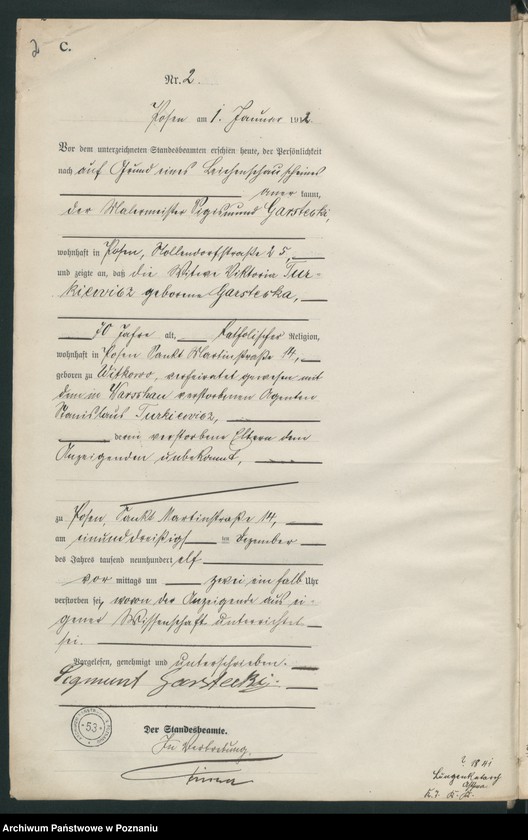 C.
Nr. 2
Posen am 1. Januar 1912
Vor dem unterzeichneten Standesbeamten erschien heute, der Persönlichkeit
nach auf Grund eines Leichenschauscheines
aner kannt,
der Malermeister Sigismund Garstecki,
wohnhaft in Posen, Hollendorfstraße 25,
und zeigte an, daß die Witwe Viktoria Tur-
kiewicz geborene Garstecka,
70 Jahre alt, katholischer Religion,
wohnhaft in Posen Sankt Martinstraße 14,
geboren zu Witkowo, verheiratet gewesen mit
dem in Warschau verstorbenen Agenten
Stanislaus Turkiewicz,
deren verstorbene Eltern dem
Anzeigenden unbekannt,
zu Posen, Sankt Martinstraße 14,
am einunddreißigsten Dezember
des Jahres tausend neunhundert elf
vor mittags um zwei ein halb Uhr
verstorben sei, wovon der Anzeigende aus ei-
gener Wissenschaft unterrichtet
sei.
Vorgelesen, genehmigt und unterschrieben.
Sigmunt Garstecki
53
Der Standesbeamte.
In Vertretung.
Lungenkatarrh
Archiwum Państwowe w Poznaniu